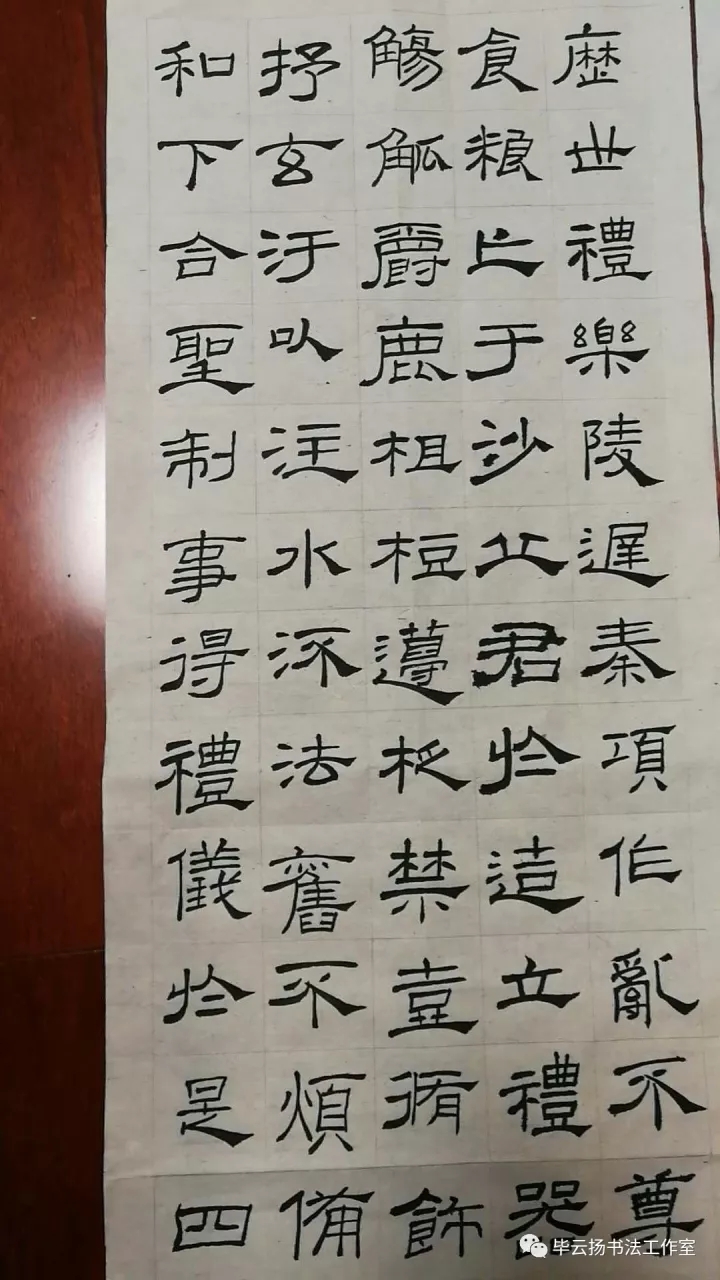 歷世禮樂陵遲秦項作亂不尊
食粮亡于沙丘君於造立禮器
觴觚爵鹿柤梪籩柉禁壺脩飾
抒玄汙以注水流法舊不煩備
和下合聖制事得禮儀於是四
毕云扬书法工作室